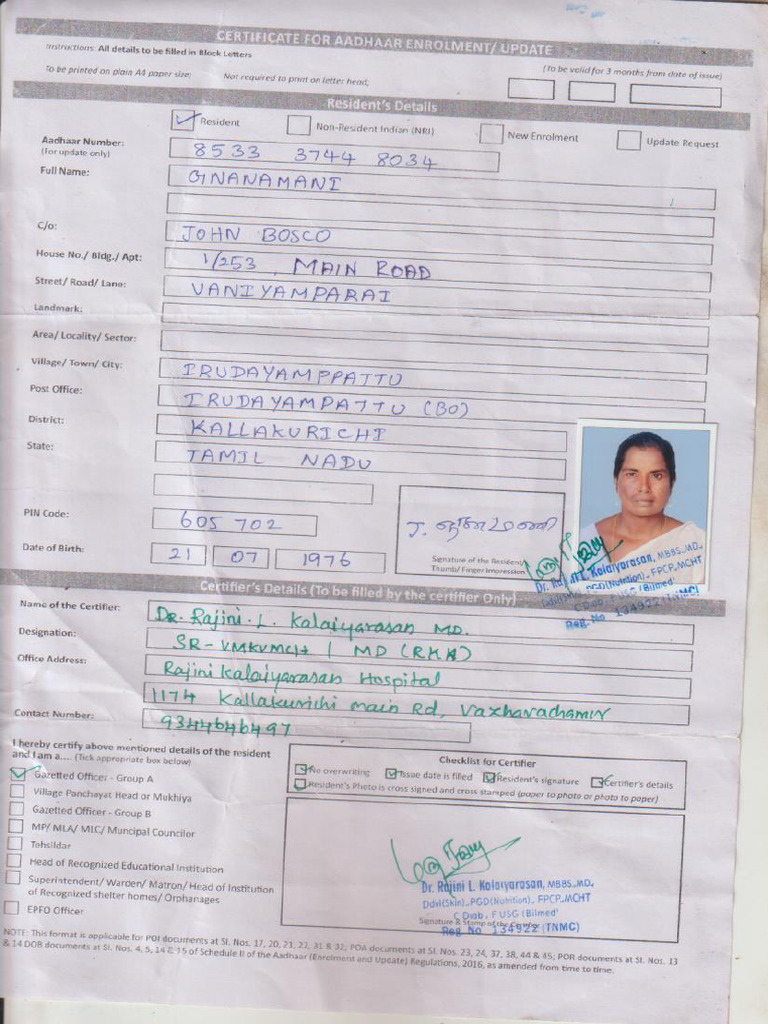 CERTIFICATE FOR AADHAAR ENROLMENT/ UPDATE
Instructions: All details to be filled in Block Letters
To be printed on plain A4 paper size; Not required to print on letter head;
(To be valid for 3 months from date of issue)
Resident's Details
Resident Non-Resident Indian (NRI) New Enrolment Update Request
Aadhaar Number: 8533 3744 8034
(For update only)
Full Name: GNANAMANI
C/o: JOHN BOSCO
House No./ Bldg./ Apt: 1/253, MAIN ROAD
Street/ Road/ Lane: VANIYAMPARAI
Landmark:
Area/ Locality/ Sector:
Village/ Town/ City: IRUDAYAMPPATTU
Post Office: IRUDAYAMPATTU (BO)
District: KALLAKURICHI
State: TAMIL NADU
PIN Code: 605 702
Date of Birth: 21 07 1976
Signature of the Resident/
Thumb/ Finger Impression
Dr. Rajini L Kalaiyarasan, MBBS.,MD.,
PGD(Nutrition)., FPCP.,MCHT
Reg. No 134922 (TNMC)
Certifier's Details (To be filled by the certifier Only)
Name of the Certifier: Dr. Rajini. L. Kalaiyarasan MD.
Designation: SR-VMKVMCH
Office Address: Rajini Kalaiyarasan Hospital
1174 Kallakurichi main Rd,
Contact Number: 9344646497
I hereby certify above mentioned details of the resident
and I am a.... (Tick appropriate box below)
Gazetted Officer - Group A
Village Panchayat Head or Mukhiya
Gazetted Officer - Group B
MP/ MLA/ MLC/ Muncipal Councilor
Tehsildar
Head of Recognized Educational Institution
Superintendent/ Warden/ Matron/ Head of Institution
of Recognized shelter homes/ Orphanages
EPFO Officer
Checklist for Certifier
No overwriting Issue date is filled Resident's signature Certifier's details
Resident's Photo is cross signed and cross stamped (paper to photo or photo to paper)
Dr. Rajini L Kalaiyarasan, MBBS.,MD.,
Ddvl(Skin)., PGD(Nutrition)., FPCP.,MCHT
C Diab, F USG (Bilmed)
Signature & Stamp of the Certifier
Reg. No 134922 (TNMC)
NOTE: This format is applicable for POI documents at Sl. Nos. 17, 20, 21, 22, 31 & 32; POA documents at Sl. Nos. 23, 24, 37, 38, 44 & 45; POR documents at Sl. Nos. 13
& 14 DOB documents at Sl. Nos. 4, 5, 14 & 15 of Schedule II of the Aadhaar (Enrolment and Update) Regulations, 2016, as amended from time to time.